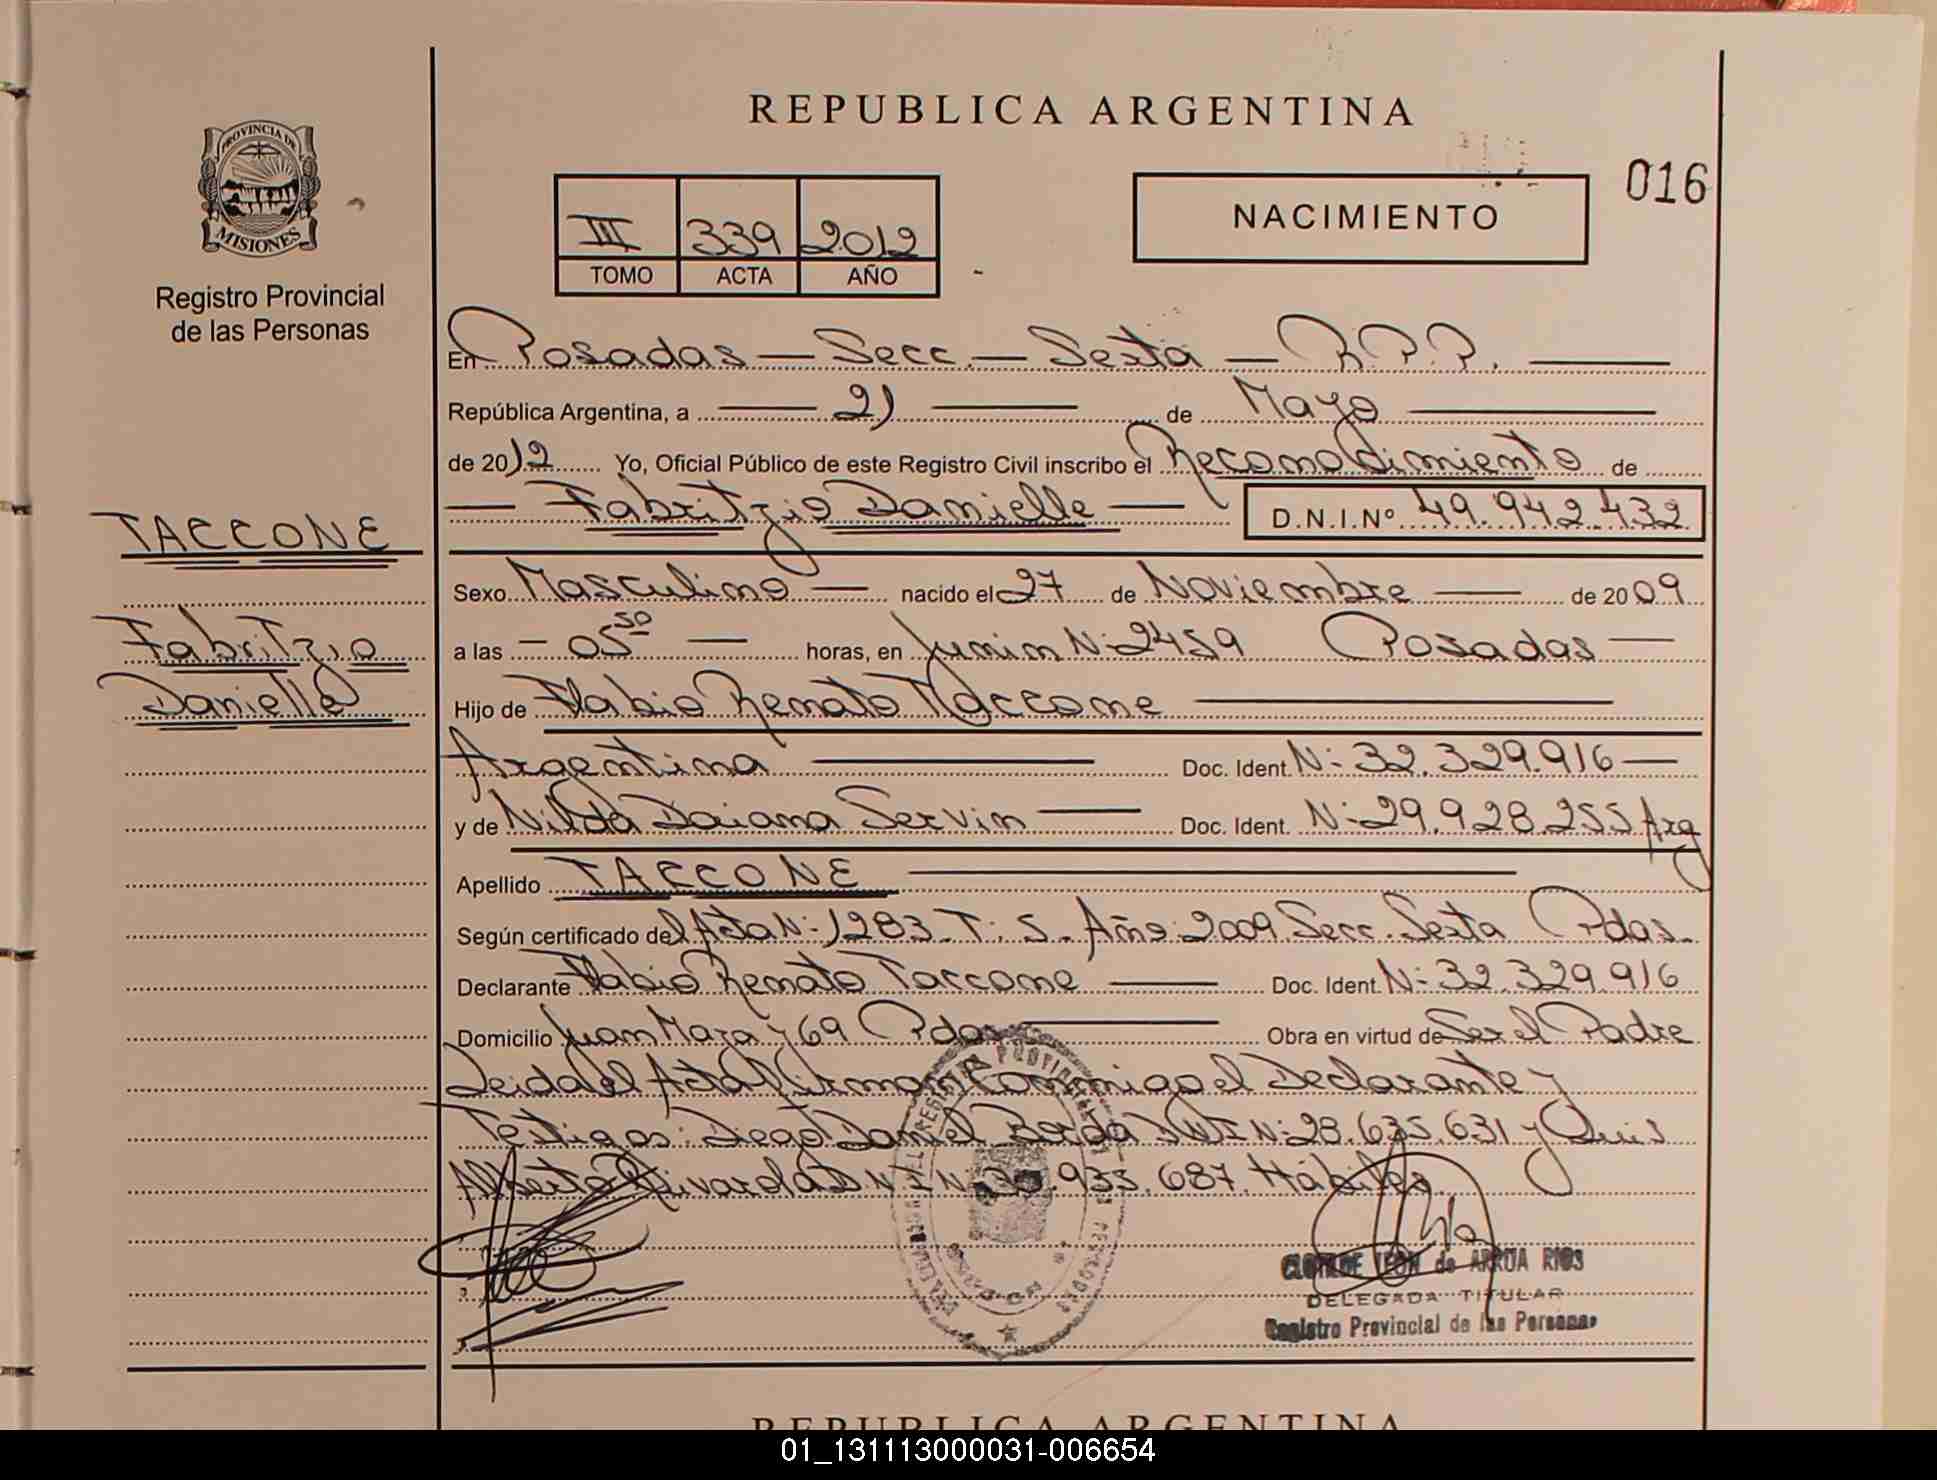 REPUBLICA ARGENTINA
016
NACIMIENTO
III 339 2012
TOMO ACTA AÑO
PROVINCIA DE
MISIONES
Registro Provincial
de las Personas
TACCONE
Fabritzio
Danielle
En Posadas — Secc. — Sexta — R.P.P.
República Argentina, a — 21 — de Mayo
de 2012 Yo, Oficial Público de este Registro Civil inscribo el de
— Fabritzio Danielle — D.N.I.Nº 49.942.432
Sexo Masculino — nacido el 27 de Noviembre — de 2009
a las — 05 50 — horas, en Junin N: 2459 Posadas —
Hijo de Flabio Renato Taccone
Argentina — Doc. Ident. N: 32.329.916 —
y de Nilda Daiana Servin — Doc. Ident. N: 29.928.255 Arg
Apellido TACCONE
Según certificado del Acta N: 1283. T: 5. Año: 2009 Secc. Sexta Pdas.
Declarante Flabio Renato Taccone — Doc. Ident. N: 32.329.916
Domicilio Juan Maza 769 Pdas. — Obra en virtud de Ser el Padre
Leida el Acta firman Conmigo el Declarante y
Testigos: Diego Daniel Borda DNI N: 28.635.631 y Luis
Alberto Rivarola DNI N: .935.687. Hábiles
CLOTILDE LEON de ARRUA RIOS
DELEGADA TITULAR
Registro Provincial de las Personas
REPUBLICA ARGENTINA
01_131113000031-006654